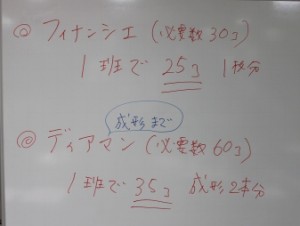 ◎ フィナンシェ (必要数30コ)
1班で 25コ 1枚分
成形まで
◎ ディアマン (必要数60コ)
1班で 35コ 成形2本分